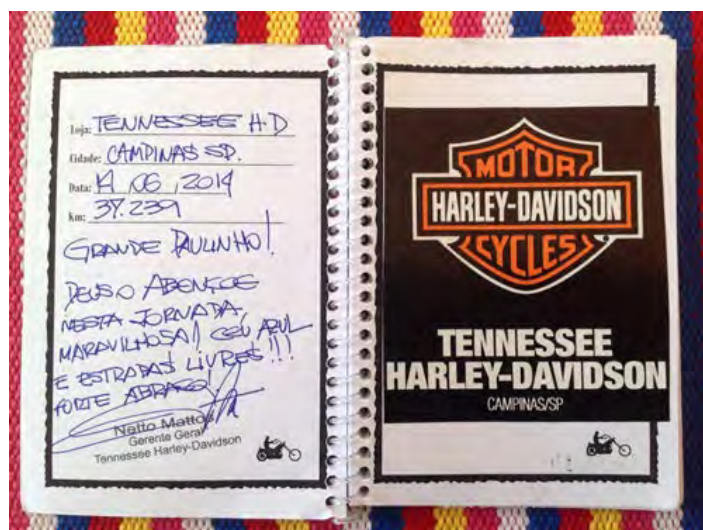 Loja: TENNESSEE H-D
Cidade: CAMPINAS SP.
Data: 14 06 2014
km: 37.239
GRANDE PAULINHO!
DEUS O ABENÇOE
NESTA JORNADA
MARAVILHOSA! CEU AZUL
E ESTRADAS LIVRES!!!
FORTE ABRAÇO!
Netto Mattos
Gerente Geral
Tennessee Harley-Davidson
MOTOR
HARLEY-DAVIDSON
CYCLES
®
TENNESSEE
HARLEY-DAVIDSON
CAMPINAS/SP